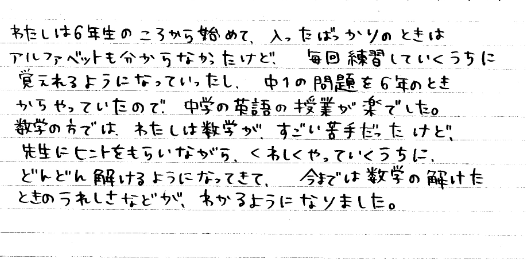 わたしは6年生のころから始めて、入ったばっかりのときは
アルファベットも分からなかったけど、毎回練習していくうちに
覚えれるようになっていったし、中1の問題を6年のとき
からやっていたので、中学の英語の授業が楽でした。
数学の方では、わたしは数学が、すごい苦手だったけど、
先生にヒントをもらいながら、くわしくやっていくうちに、
どんどん解けるようになってきて、今までは数学の解けた
ときのうれしさなどが、わかるようになりました。